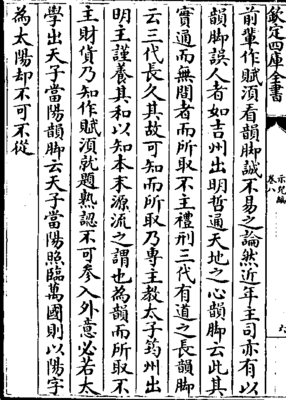 欽定四庫全書
示兒編
卷八
六
前輩作賦湏看韻脚誠不易之論然近年主司亦有以
韻脚誤人者如吉州出明哲通天地之心韻脚云此其
實通而無間者而所取不主禮刑三代有道之長韻脚
云三代長久其故可知而所取乃專主教太子筠州出
明主謹養其和以知本末源流之謂也為韻而所取不
主財貨乃知作賦湏就題熟認不可參入外意必若太
學出天子當陽韻脚云天子當陽照臨萬國則以陽字
為太陽却不可不從